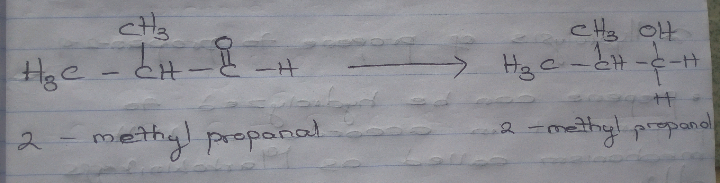 CH3 CH3 OH
O
H3C - CH - C - H ⟶ H3C - CH - C - H
H
2 - methyl propanal 2 - methyl propanol